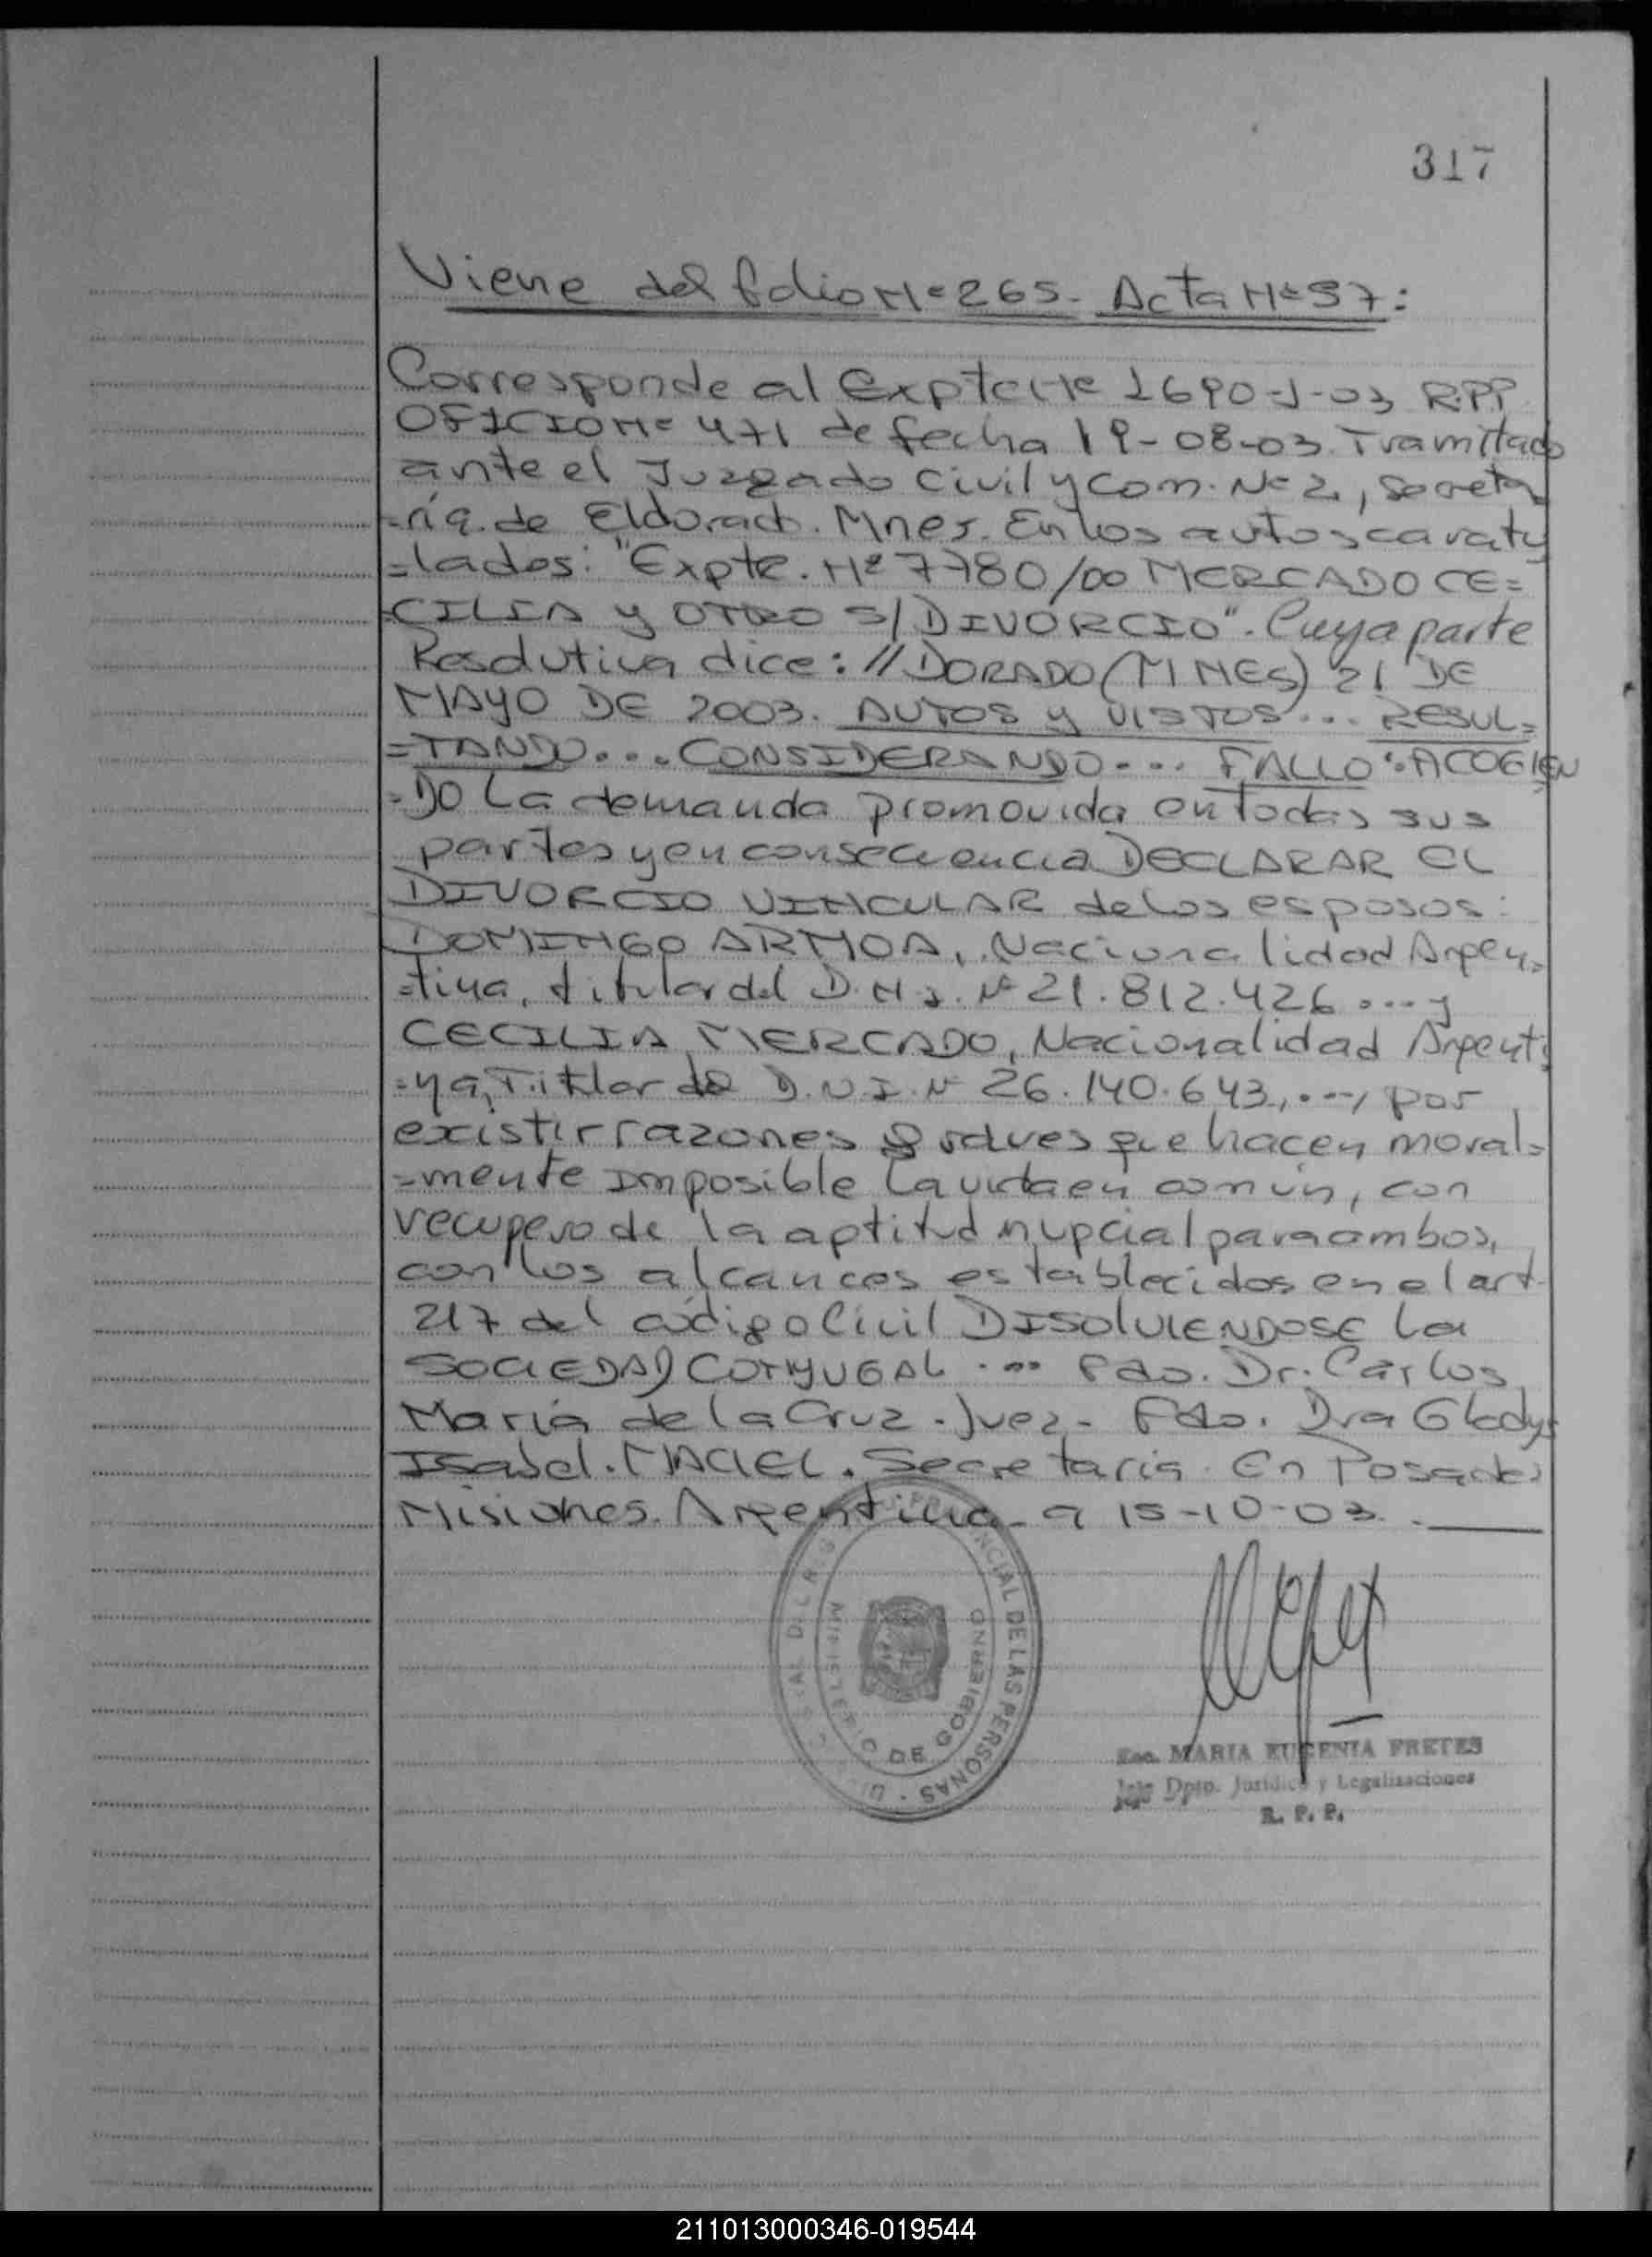 317
Viene del folio Nº 265. Acta Nº 97:
Corresponde al Expte Nº 1690-J-03 R.P.P.
OFICIO Nº 471 de fecha 19-08-03. Tramitado
ante el Juzgado Civil y Com. Nº 2, Secreta
=ría de Eldorado. Mnes. En los autos caratu
=lados: "Expte. Nº 7780/00 MERCADO CE=
=CILIA y OTRO S/ DIVORCIO". Cuya parte
Resolutiva dice: // DORADO (MNES) 21 DE
MAYO DE 2003. AUTOS y VISTOS... RESUL=
=TANDO.... CONSIDERANDO.... FALLO: ACOGIEN
=DO La demanda promovida en todas sus
partes y en consecuencia DECLARAR EL
DIVORCIO VINCULAR de los esposos:
DOMINGO ARMOA, Nacionalidad Argen=
=tina, titular del D.N.I. Nº 21.812.426 .... y
CECILIA MERCADO, Nacionalidad Argenti
=na, Titular de D.N.I. Nº 26.140.643, ..., por
existir razones graves que hacen moral=
=mente imposible la vida en común, con
recupero de la aptitud nupcial para ambos,
con los alcances establecidos en el art.
217 del código Civil DISOLVIENDOSE la
SOCIEDAD CONYUGAL .... Fdo. Dr. Carlos
María de la Cruz - Juez - Fdo. Dra Gladys
Isabel. MACIEL. Secretaria. En Posadas
Misiones. Argentina a 15-10-03.
PROVINCIAL DE LAS PERSONAS
MINISTERIO DE GOBIERNO
Esc. MARIA EUGENIA FRETES
Jefe Dpto. Jurídico y Legalizaciones
R. P. P.
211013000346-019544